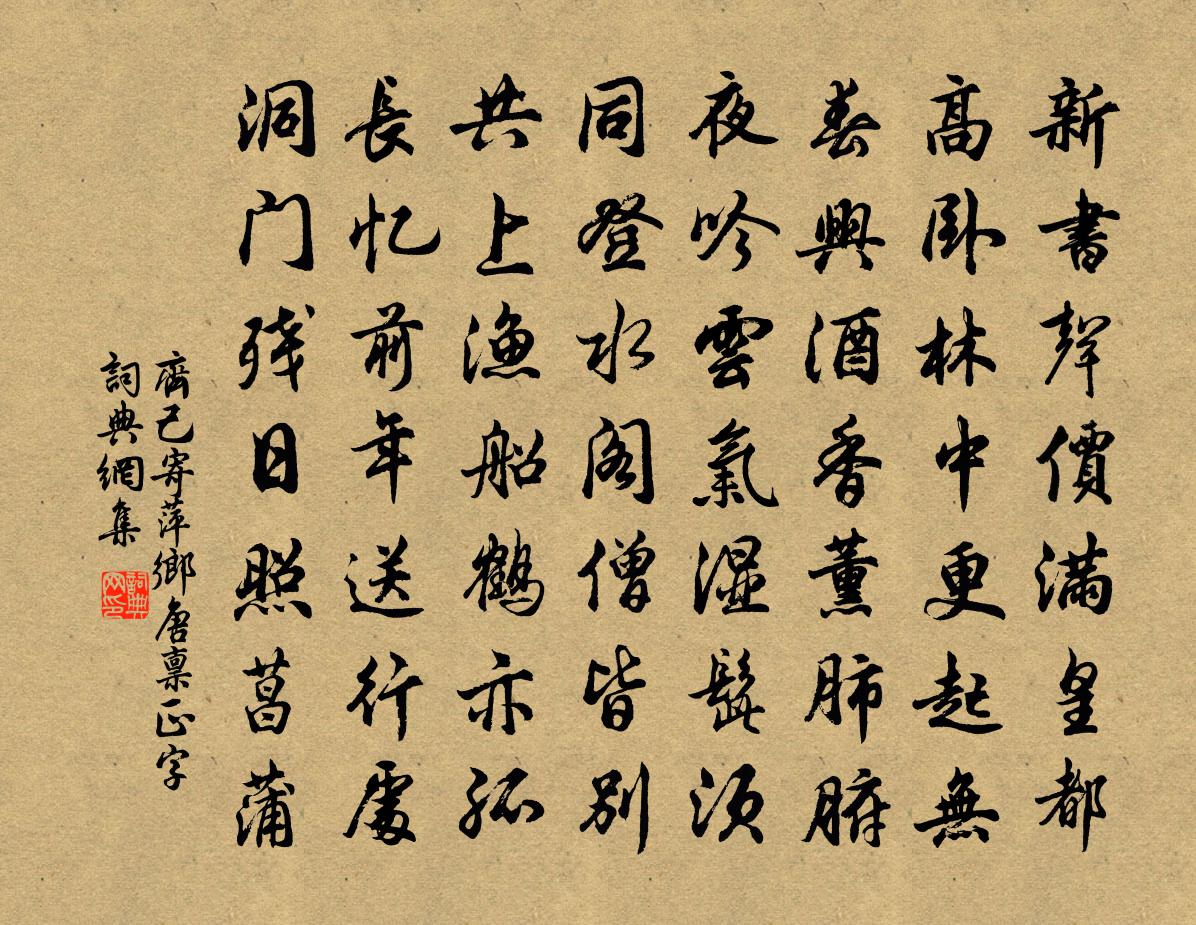 新書聲價滿皇都
高卧林中更起無
春興酒香薰肺腑
夜吟雲氣湿髭须
同登水阁僧皆别
共上渔船鶴亦孤
長忆前年送行處
洞门残日照菖蒲
齊己寄萍鄉唐禀正字
詞典網集
詞典网印